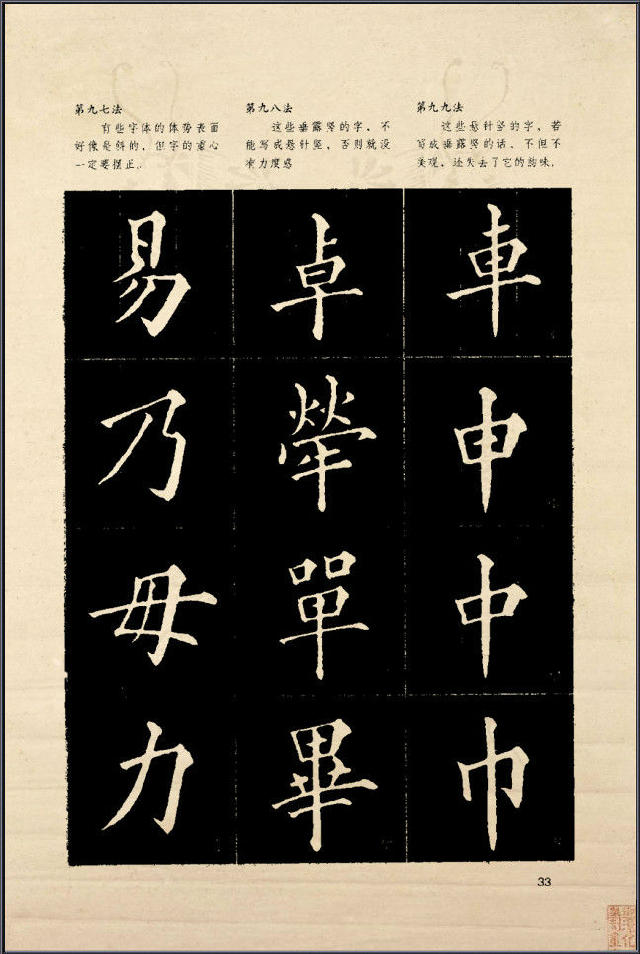 第九七法
有些字体的体势表面
好像是斜的，但字的重心
一定要摆正。
第九八法
这些垂露竖的字，不
能写成悬针竖，否则就没
有力度感
第九九法
这些悬针竖的字，若
写成垂露竖的话，不但不
美观，还失去了它的韵味。
易
乃
毋
力
卓
犖
單
畢
車
申
中
巾
33